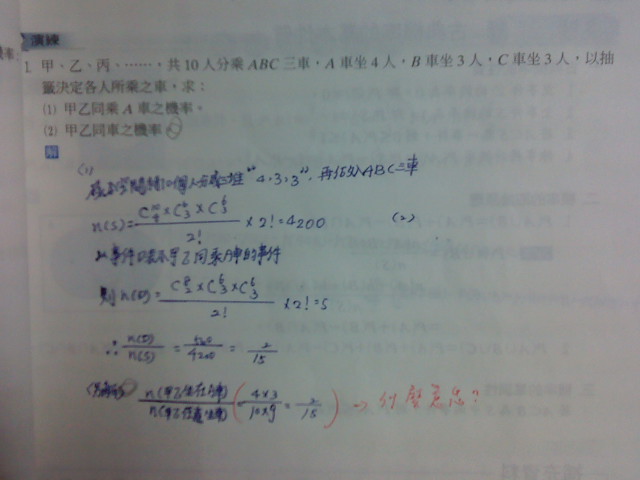 演練
1. 甲、乙、丙、……，共10人分乘ABC三車，A車坐4人，B車坐3人，C車坐3人，以抽
籤決定各人所乘之車，求：
(1) 甲乙同乘A車之機率。
(2) 甲乙同車之機率。
解
(1)
10個人分成三堆"4,3,3"，再分入ABC三車
n(S)= C^10_4 × C^6_3 × C^3_3 / 2! × 2! = 4200 (2)
事件 表示甲乙同乘A車的事件
則 n(D)= C^8_2 × C^6_3 × C^3_3 / 2! × 2! =
∴ n(D)/n(S) = 560/4200 = 2/15
n(甲乙坐在A車)/n(甲乙任意坐車) (= 4×3/10×9 = 2/15) → 什麼意思?